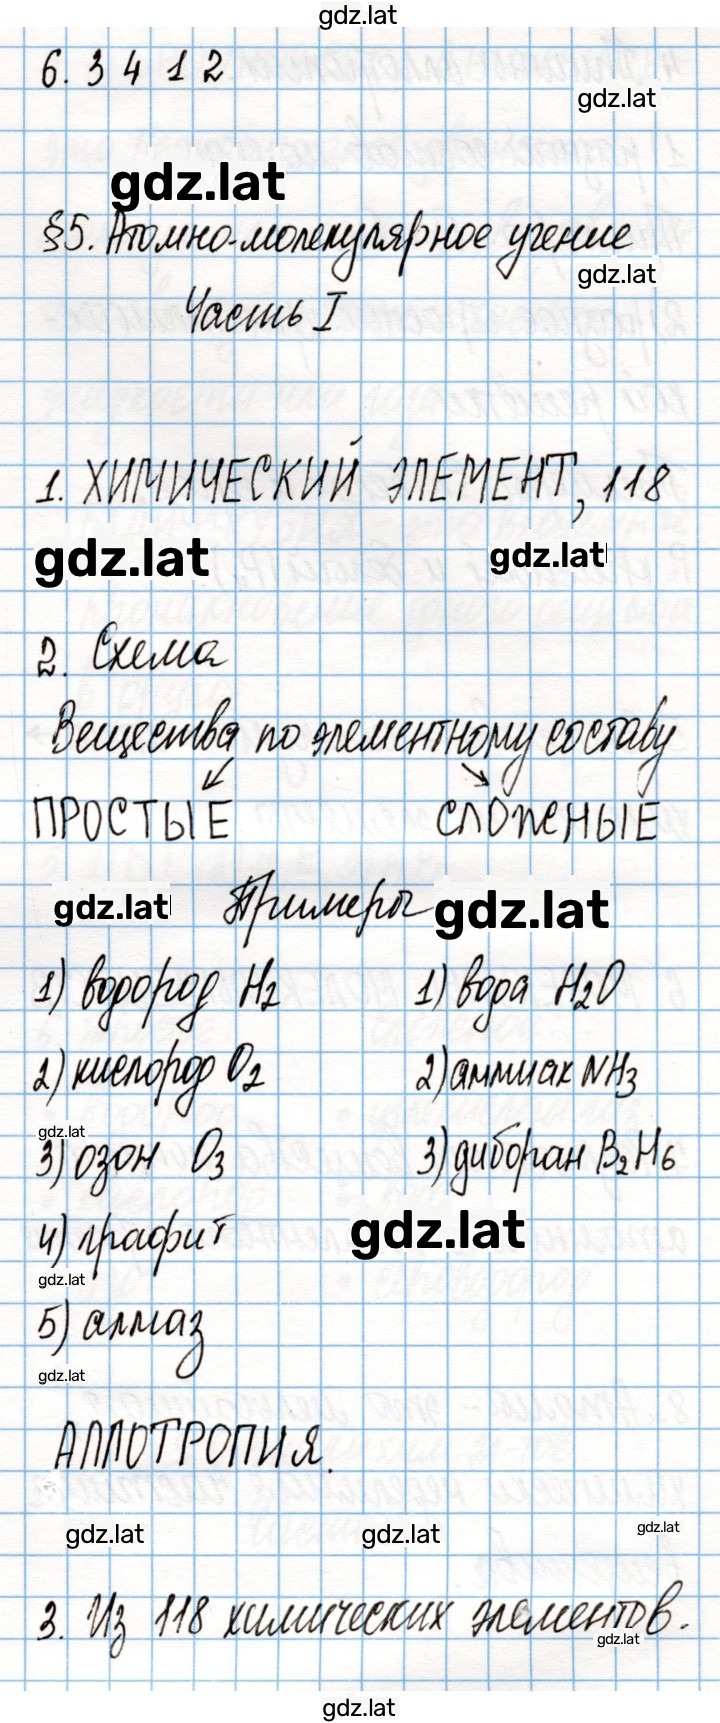 gdz.lat
6. 3 4 1 2
gdz.lat
gdz.lat
§5. Атомно-молекулярное учение
gdz.lat
Часть I
1. ХИМИЧЕСКИЙ ЭЛЕМЕНТ, 118
gdz.lat gdz.lat
2. Схема
Вещества по элементному составу
ПРОСТЫЕ СЛОЖНЫЕ
gdz.lat Примеры gdz.lat
1) водород H2 1) вода H2O
2) кислород O2 2) аммиак NH3
gdz.lat
3) озон O3 3) диборан B2H6
4) графит gdz.lat
gdz.lat
5) алмаз
gdz.lat
АЛЛОТРОПИЯ.
gdz.lat gdz.lat gdz.lat
3. Из 118 химических элементов.
gdz.lat
gdz.lat